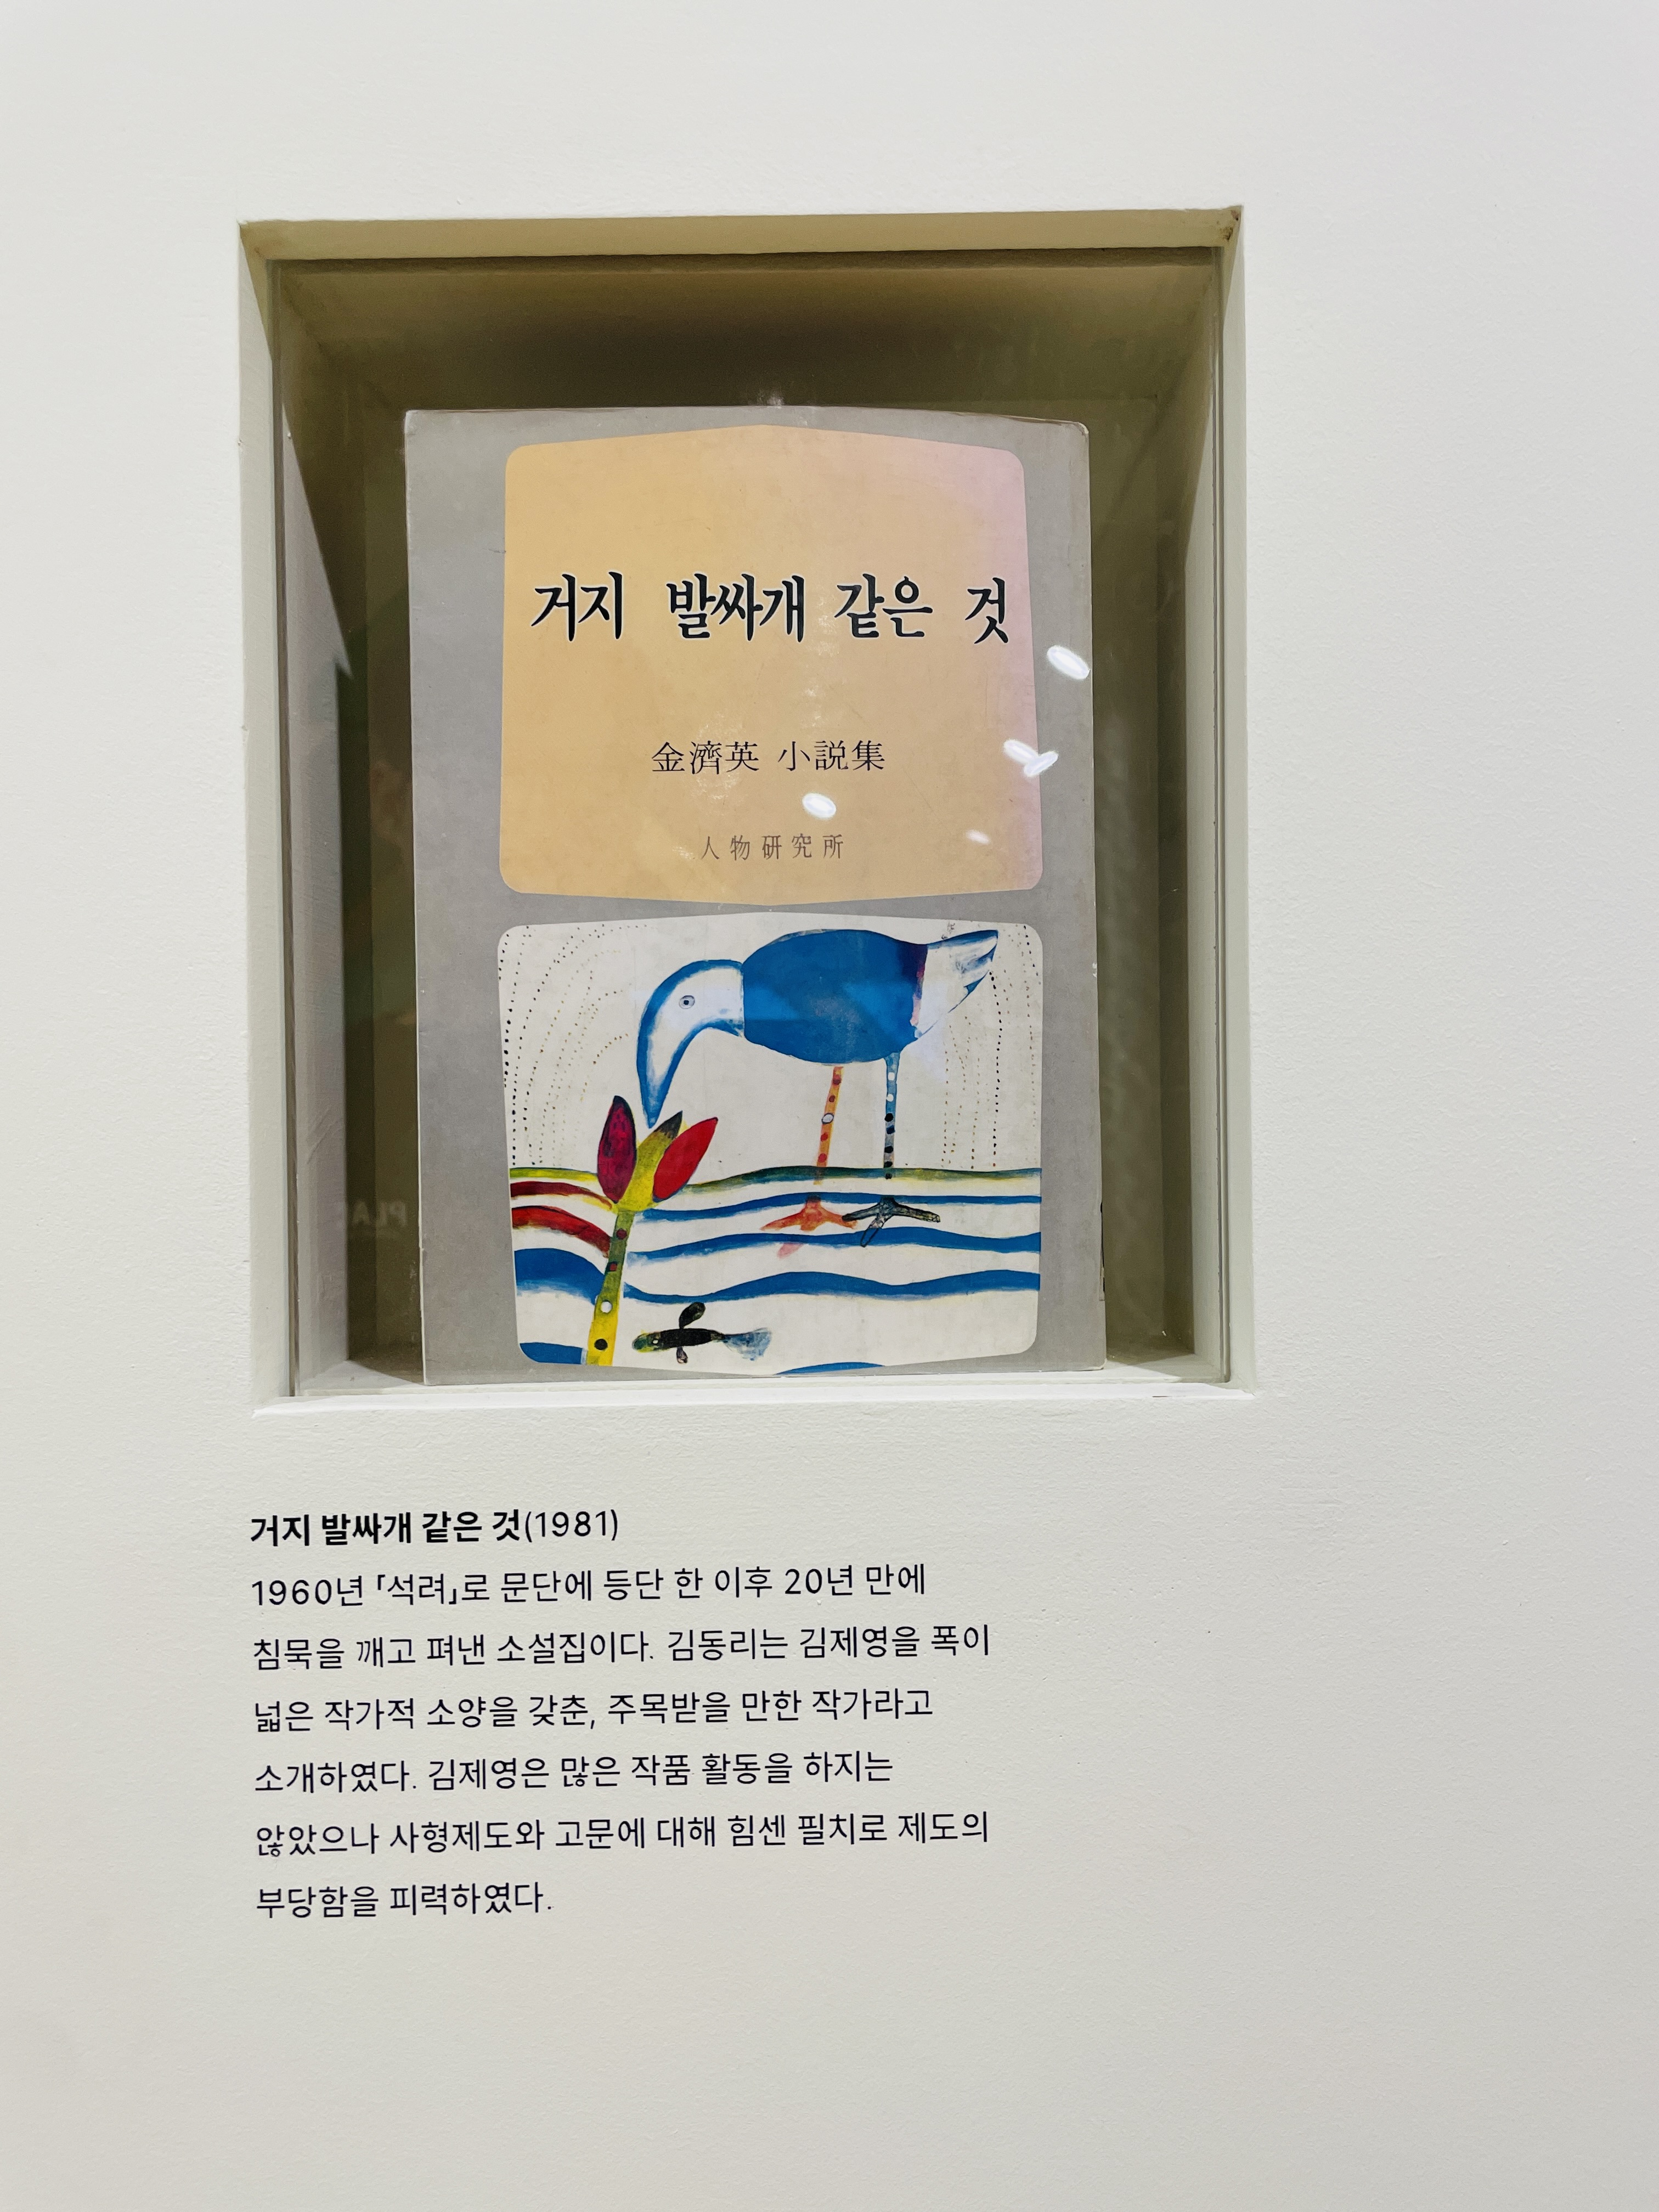 거지 발싸개 같은 것
金濟英 小説集
人物研究所
거지 발싸개 같은 것(1981)
1960년 「석려」로 문단에 등단 한 이후 20년 만에
침묵을 깨고 펴낸 소설집이다. 김동리는 김제영을 폭이
넓은 작가적 소양을 갖춘, 주목받을 만한 작가라고
소개하였다. 김제영은 많은 작품 활동을 하지는
않았으나 사형제도와 고문에 대해 힘센 필치로 제도의
부당함을 피력하였다.